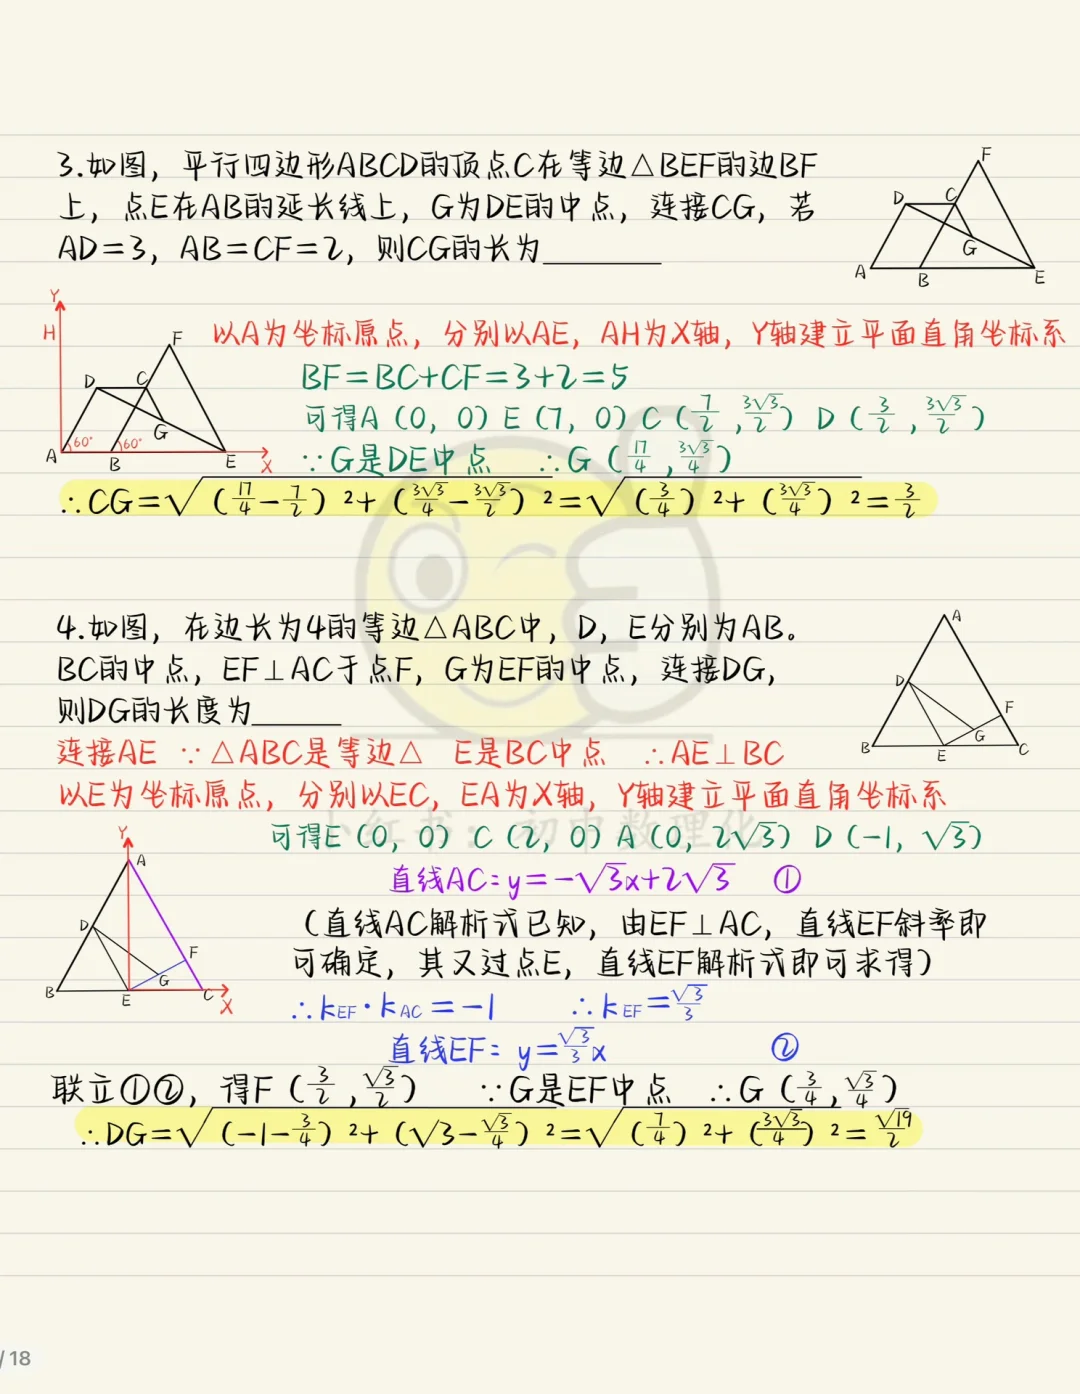 3.如图，平行四边形ABCD的顶点C在等边△BEF的边BF
上，点E在AB的延长线上，G为DE的中点，连接CG，若
AD=3，AB=CF=2，则CG的长为________
F
D
C
G
A
B
E
Y
H
F
D
C
G
60°
60°
A
B
E
X
以A为坐标原点，分别以AE，AH为X轴，Y轴建立平面直角坐标系
BF=BC+CF=3+2=5
可得A（0，0）E（7，0）C（7/2，3√3/2）D（3/2，3√3/2）
∵G是DE中点 ∴G（17/4，3√3/4）
∴CG=√（17/4-7/2）²+（3√3/4-3√3/2）²=√（3/4）²+（3√3/4）²=3/2
4.如图，在边长为4的等边△ABC中，D，E分别为AB。
BC的中点，EF⊥AC于点F，G为EF的中点，连接DG，
则DG的长度为______
A
D
F
G
B
E
C
连接AE ∵△ABC是等边△ E是BC中点 ∴AE⊥BC
以E为坐标原点，分别以EC，EA为X轴，Y轴建立平面直角坐标系
小红书：初中数理化
可得E（0，0）C（2，0）A（0，2√3）D（-1，√3）
直线AC：y=-√3x+2√3 ①
（直线AC解析式已知，由EF⊥AC，直线EF斜率即
可确定，其又过点E，直线EF解析式即可求得）
Y
A
D
F
G
B
E
C
X
∴kEF·kAC=-1 ∴kEF=√3/3
直线EF：y=√3/3x ②
联立①②，得F（3/2，√3/2） ∵G是EF中点 ∴G（3/4，√3/4）
∴DG=√（-1-3/4）²+（√3-√3/4）²=√（7/4）²+（3√3/4）²=√19/2
/18